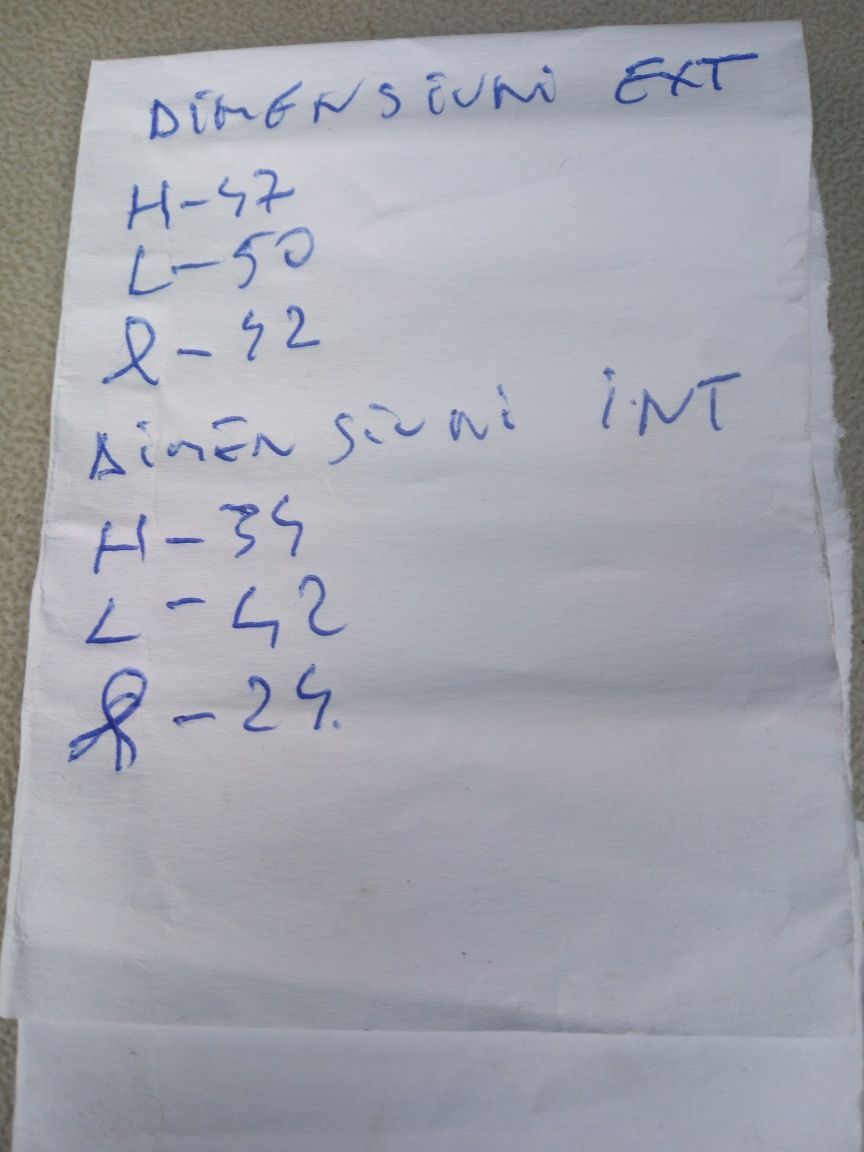 DIMENSIUNI EXT
H-47
L-50
l-42
DIMENSIUNI INT
H-34
L-42
l-24.